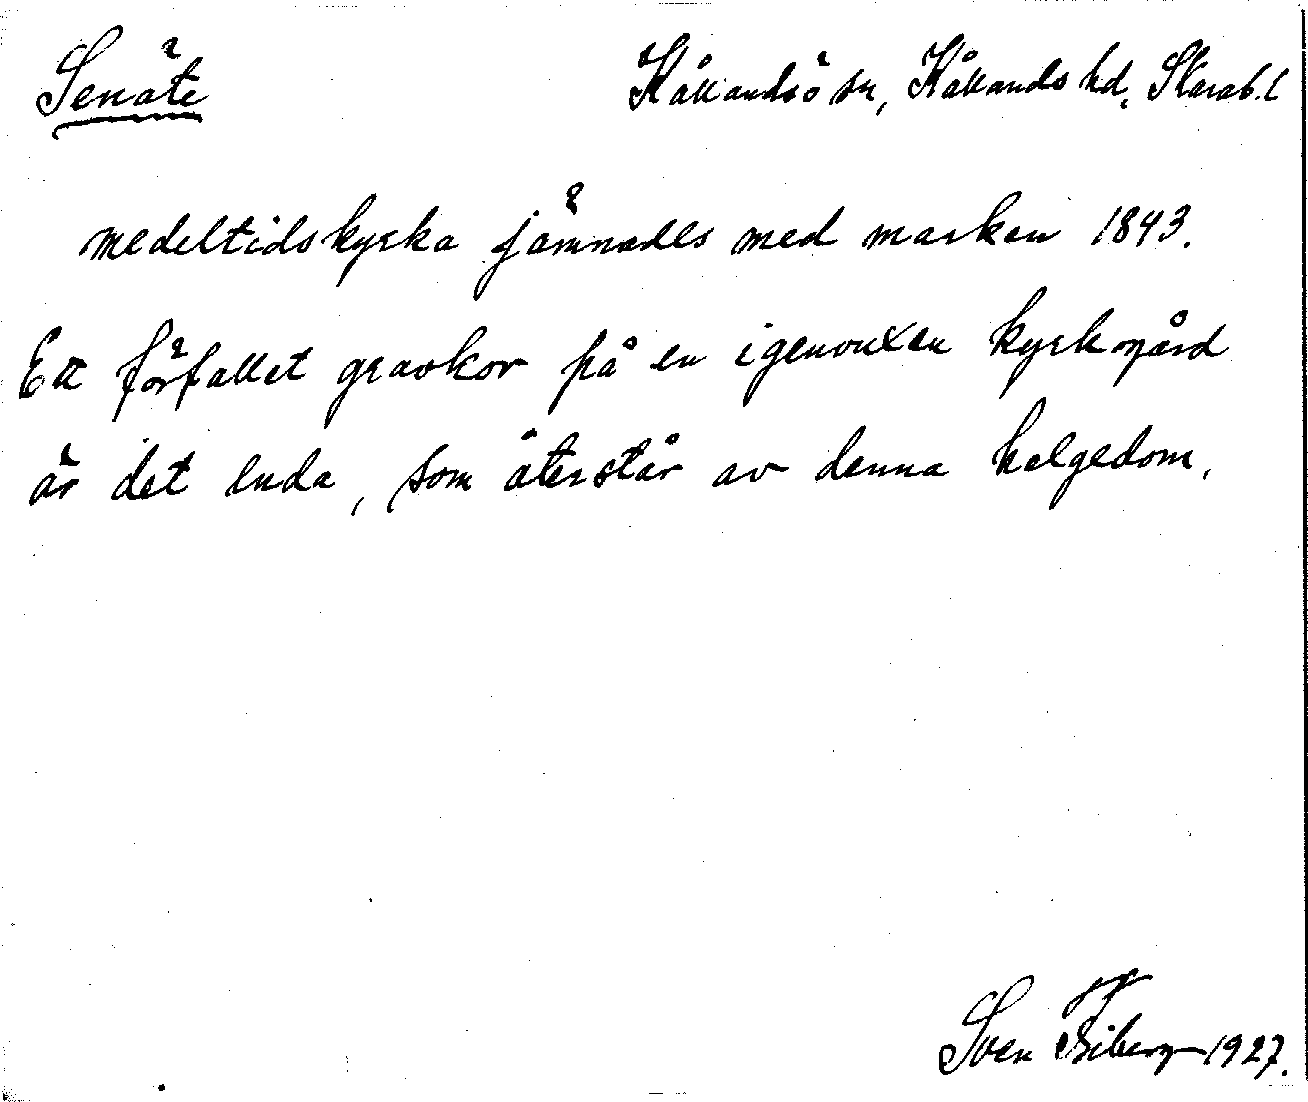 Senäte Kållandsö sn, Kållands hd, Skarab.l
medeltidskyrka jämnades med marken 1843.
Ett förfallet gravkor på en igenvuxen kyrkogård
är det enda, som återstår av denna helgedom.
Sven Fiberg 1927.